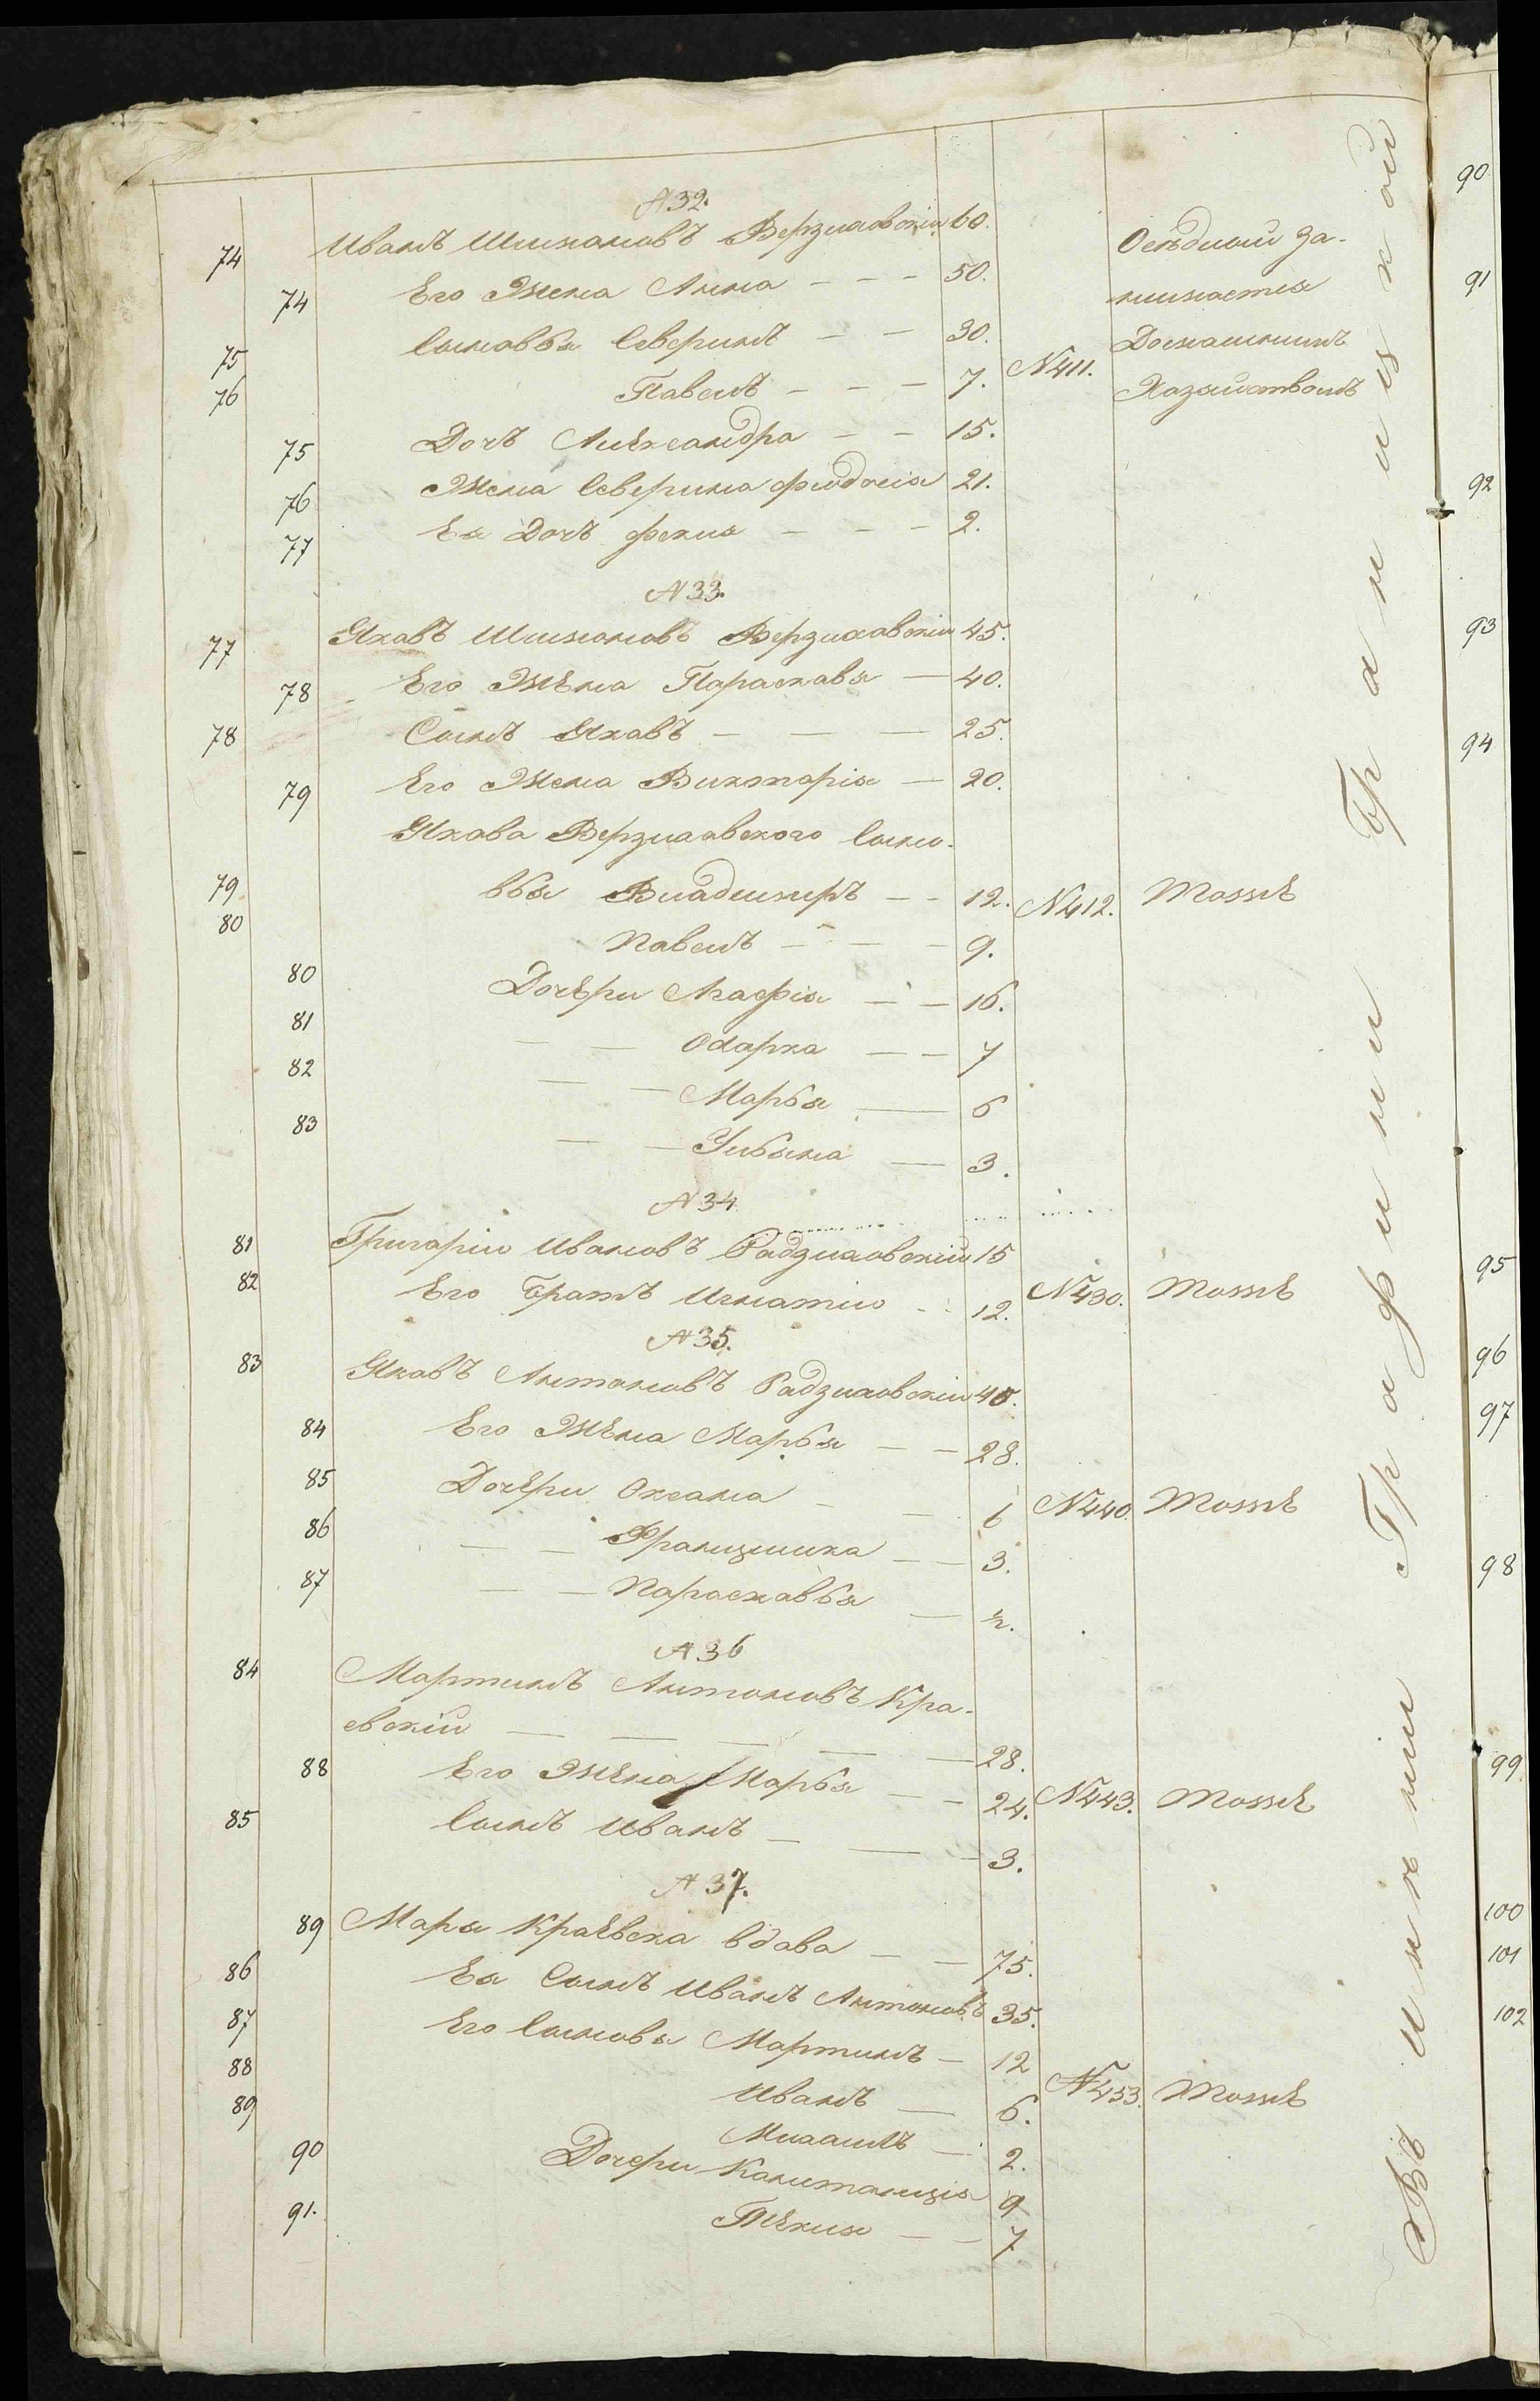 N 32.
74 Иванъ Шимановъ Верзиловскій 60. Осѣдлой за-
74 Его Жена Анна — — — 50. нимается
75 Сыновья Северинъ — — 30. Домашнимъ
76 Павелъ — — — 7. N 411. Хазяйствомъ
75 Дочъ Александра — — 15.
76 Жена Северина Феодосія 21.
77 Ея Дочъ Фекла — — — 2.
N 33.
77 Яковъ Шимановъ Верзиловскій 45.
78 Его Жена Параскавя — 40.
78 Сынъ Яковъ — — — 25.
79 Его Жена Викторія — 20.
Якова Верзиловского Сыно-
79 вья Владимиръ — — 12. N 412. Тоже
80 Павелъ — — — 9.
80 Дочери Агафія — — 16.
81 — — Одарка — — 7
82 — — Марья — 6
83 — — Ульяна — 3.
N 34
81 Григорій Ивановъ Радзиловскій 15
82 Его Братъ Игнатій - - 12. N 430. Тоже
N 35.
83 Яковъ Антоновъ Радзиловскій 40.
84 Его Жена Марья — — 28.
85 Дочери Оксана — — 6 N 440. Тоже
86 — — Францишка — — 3.
87 — — Параскавья — ½.
N 36
84 Мартинъ Антоновъ Кра-
евскій — — — — — 28.
88 Его Жена Марья — — 24. N 443. Тоже
85 Сынъ Иванъ — — — 3.
N 37.
89 Марья Краевска вдова — — 75.
86 Ея Сынъ Иванъ Антоновъ 35.
87 Его Сыновья Мартинъ — 12
88 Иванъ — 6. N 453. Тоже
89 — 2.
90 Дочери 9
91. Текля — — 7
90
91
92
93
94
95
96
97
98
99
100
101
102